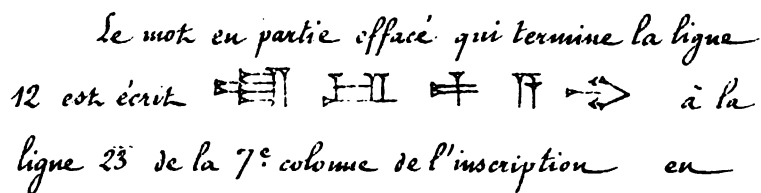 Le mot en partie effacé qui termine la ligne
12 est écrit à la
ligne 23 de la 7ᵉ colonne de l'inscription en